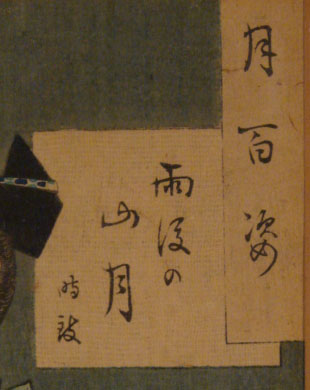 月百姿
雨後の
山月
時致